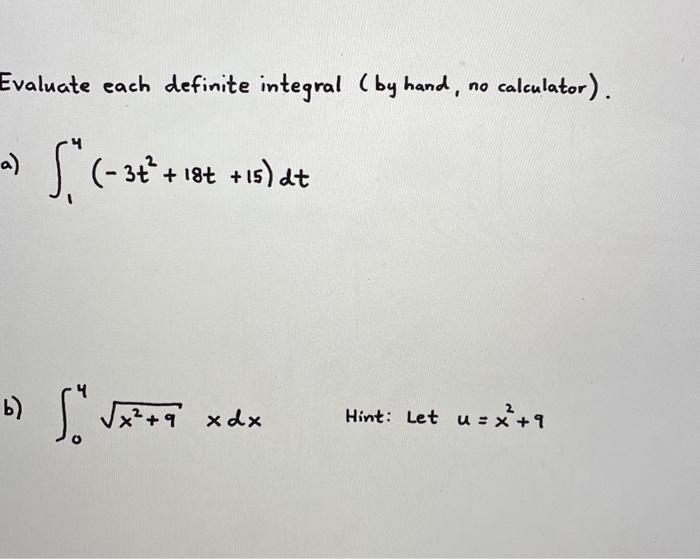 Evaluate each definite integral (by hand, no calculator).
a) ∫₁⁴ (-3t² + 18t + 15) dt
b) ∫₀⁴ √(x²+9) x dx Hint: Let u = x²+9